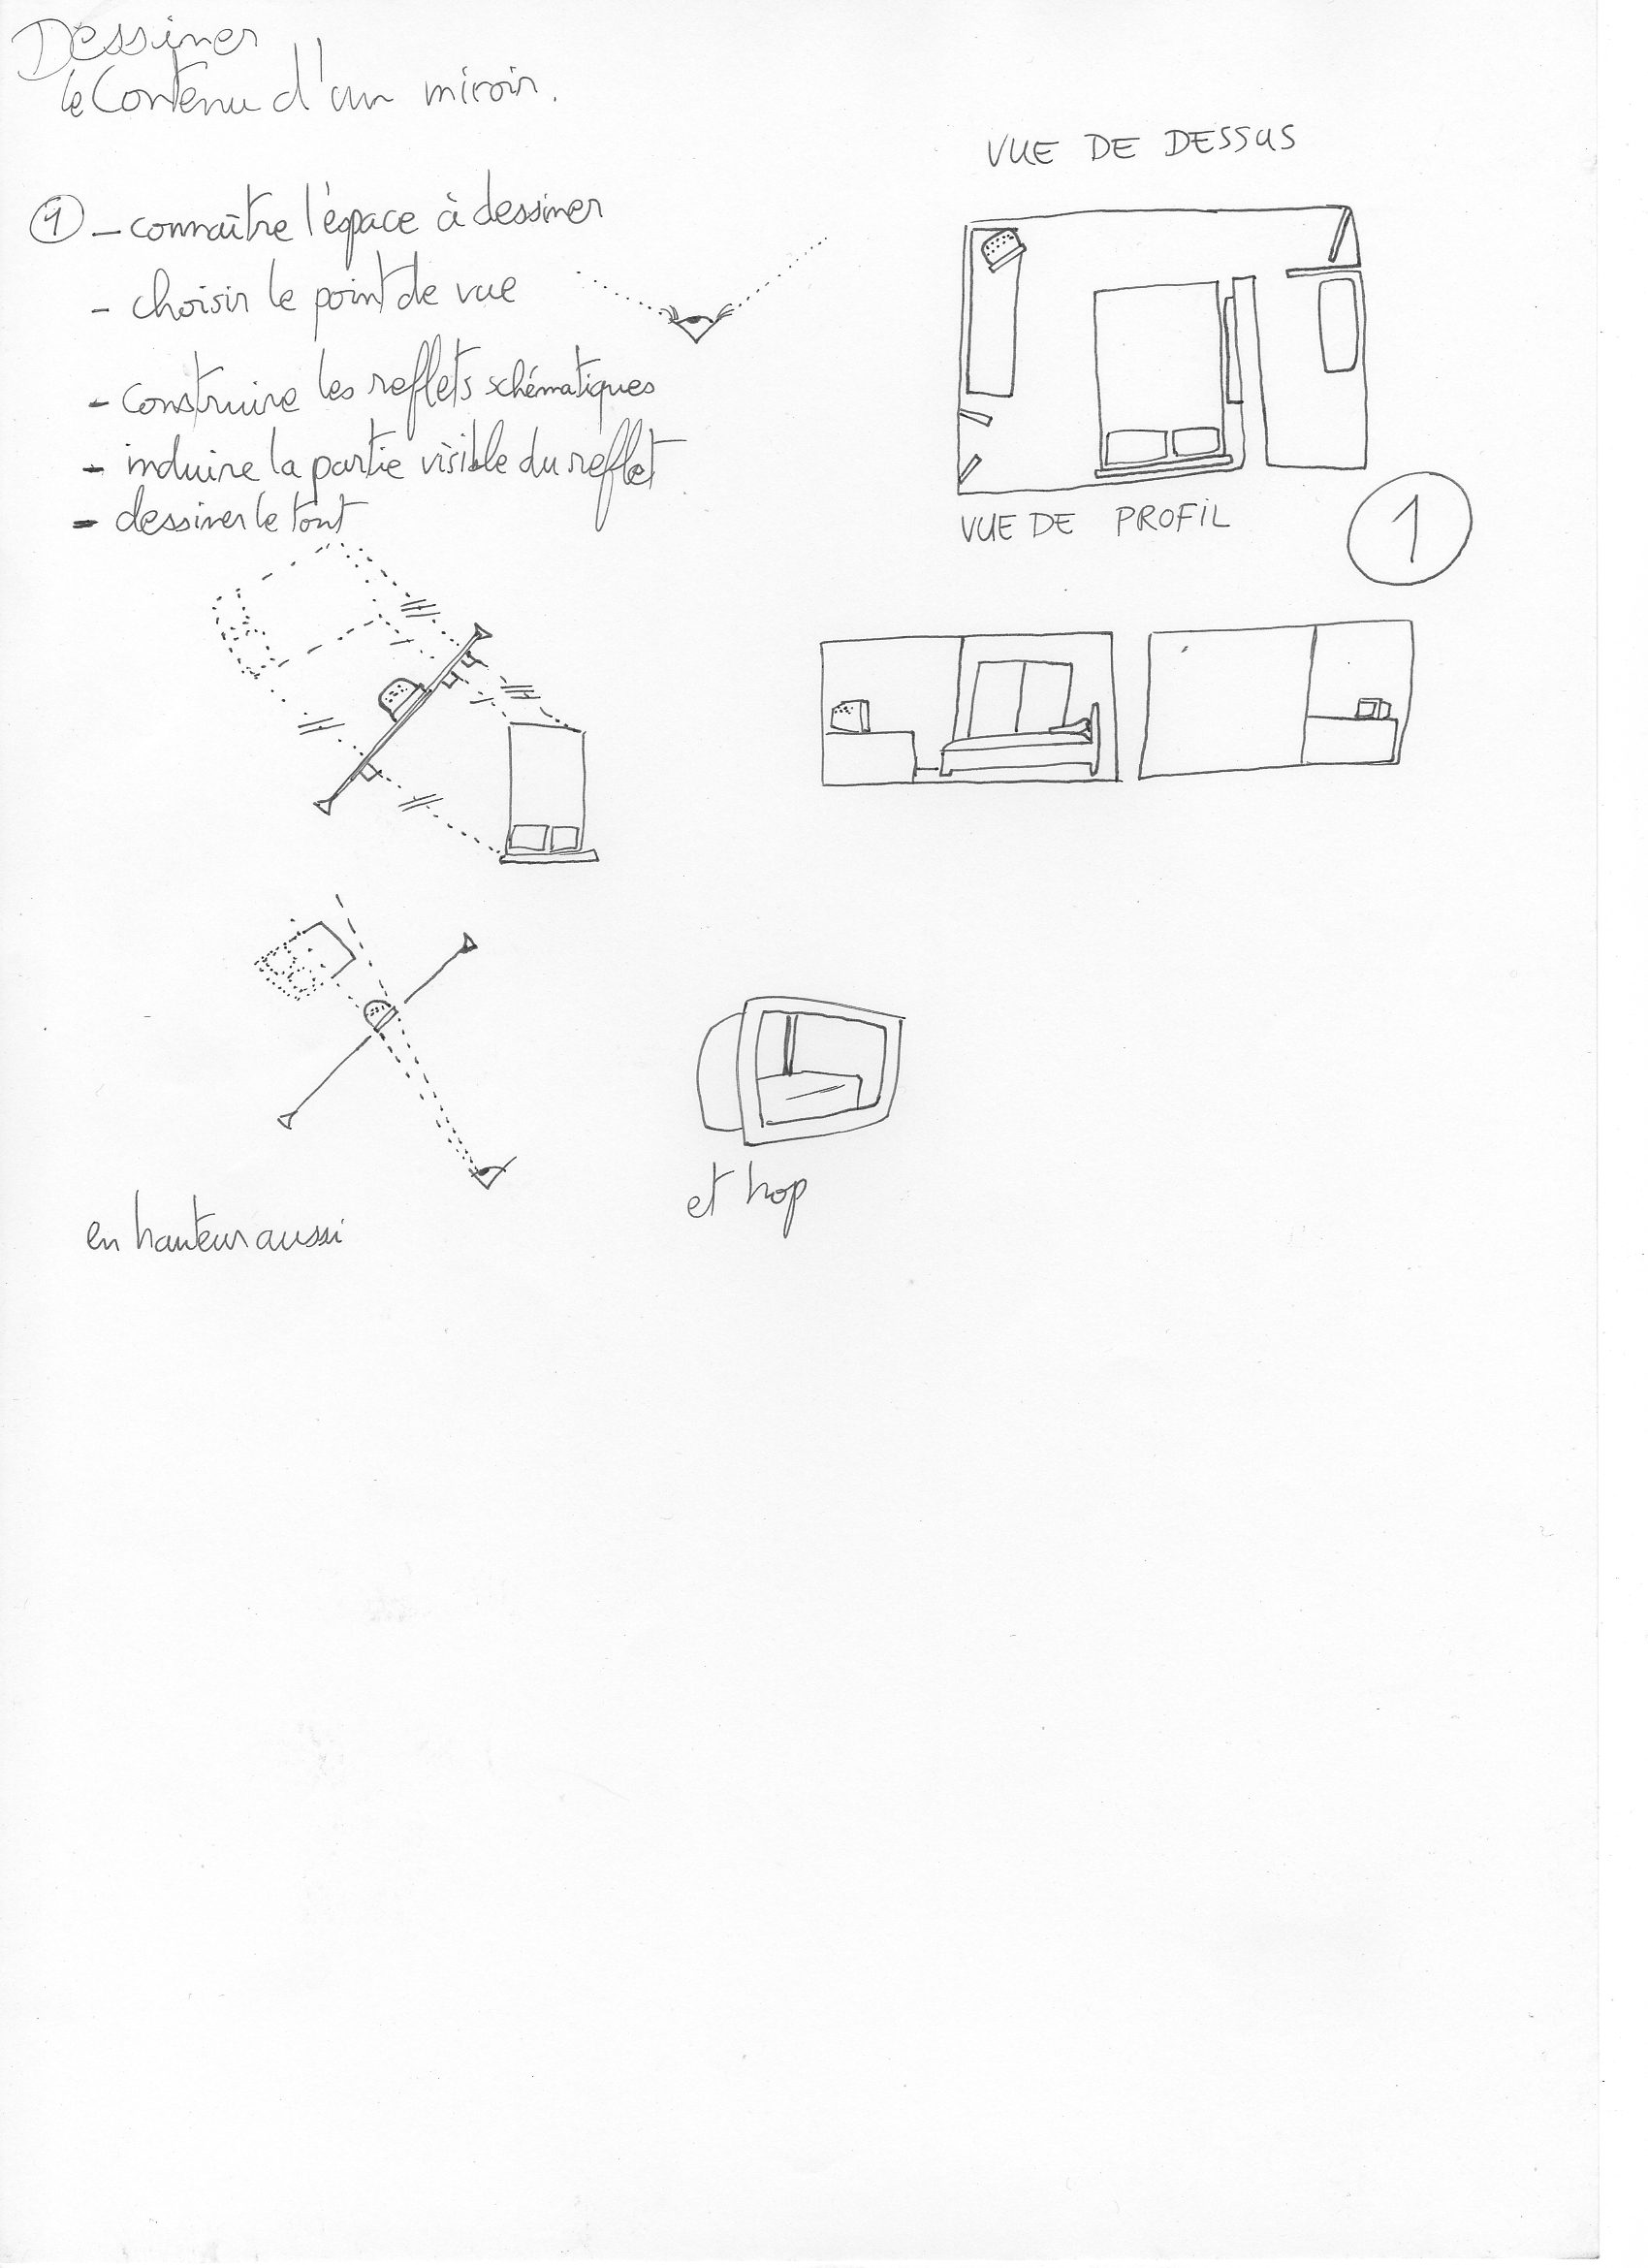 Dessiner
le Contenu d'un miroir.
① - connaître l'éspace à dessiner
- choisir le point de vue
- construire les reflets schématiques
- induire la partie visible du reflet
- dessiner le tout
VUE DE DESSUS
VUE DE PROFIL
1
en hauteur aussi
et hop